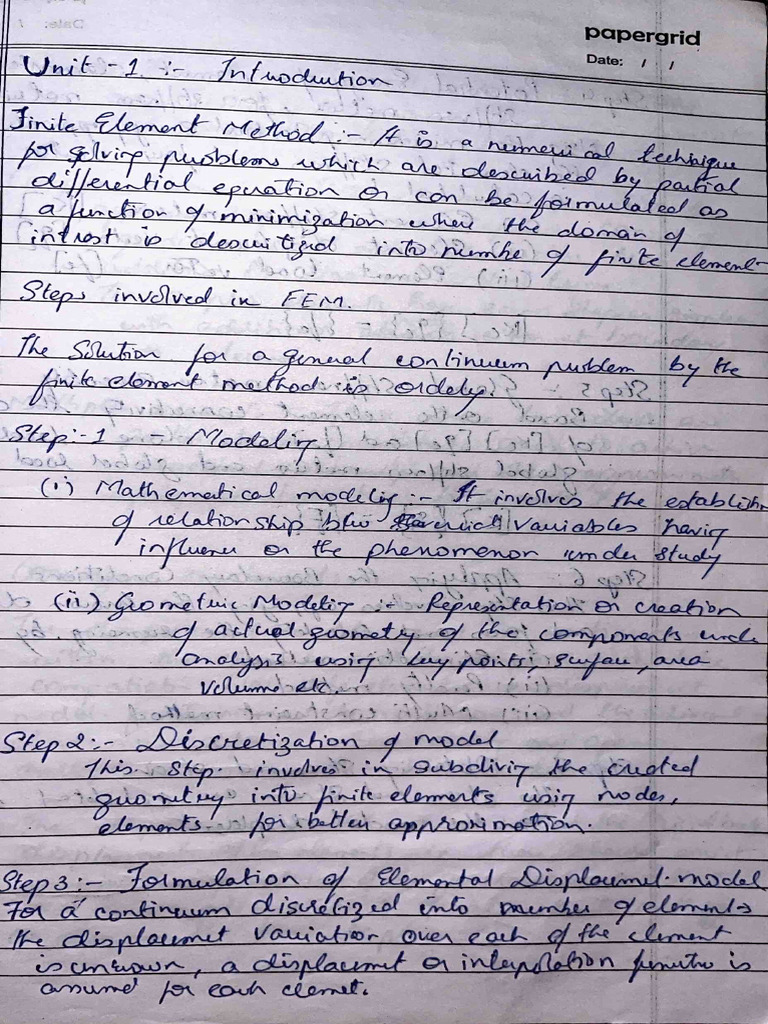 papergrid
Date: / /
Unit-1 :- Introduction
Finite Element Method :- It is a numerical technique
for solving problems which are described by partial
differential equation or can be formulated as
a function of minimization where the domain of
intrest is descritized into numbe of finite element
Steps involved in FEM.
The Solution for a general continuum problem by the
finite element method is orderly.
Step:-1 - Modeling
(i) Mathematical modeling :- It involves the establish
of relationship btw variables having
influence on the phenomenon under study
(ii) Geometric Modeling :- Representation or creation
of actual geometry of the components unde
analysis using key points, surface, area
volume etc
Step 2:- Discretization of model
This Step involves in subdiving the created
geometry into finite elements using nodes,
elements for better approximation.
Step 3:- Formulation of Elemental Displacemet model
For a continuum discretized into number of elements
the displacemet variation over each of the element
is unknown, a displacemet or interpolation functio is
assumed for each elemet.